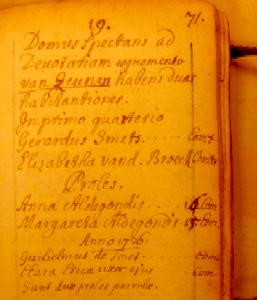 19. 71.
Domus spectans ad
Devotariam cognomento
van Zeunen habens duas
habitationes.
In primo quarterio
Gerardus Smets...... Com.
Elisabetha vand. Broeck Com.
Proles.
Anna Aldegondis. 14. Com.
Margareta Aldegondis. 15. Com.
Anno 1736.
Guilielmus de Smet... Com.
Clara uxor ejus Com.
Sunt duæ proles parvulæ.